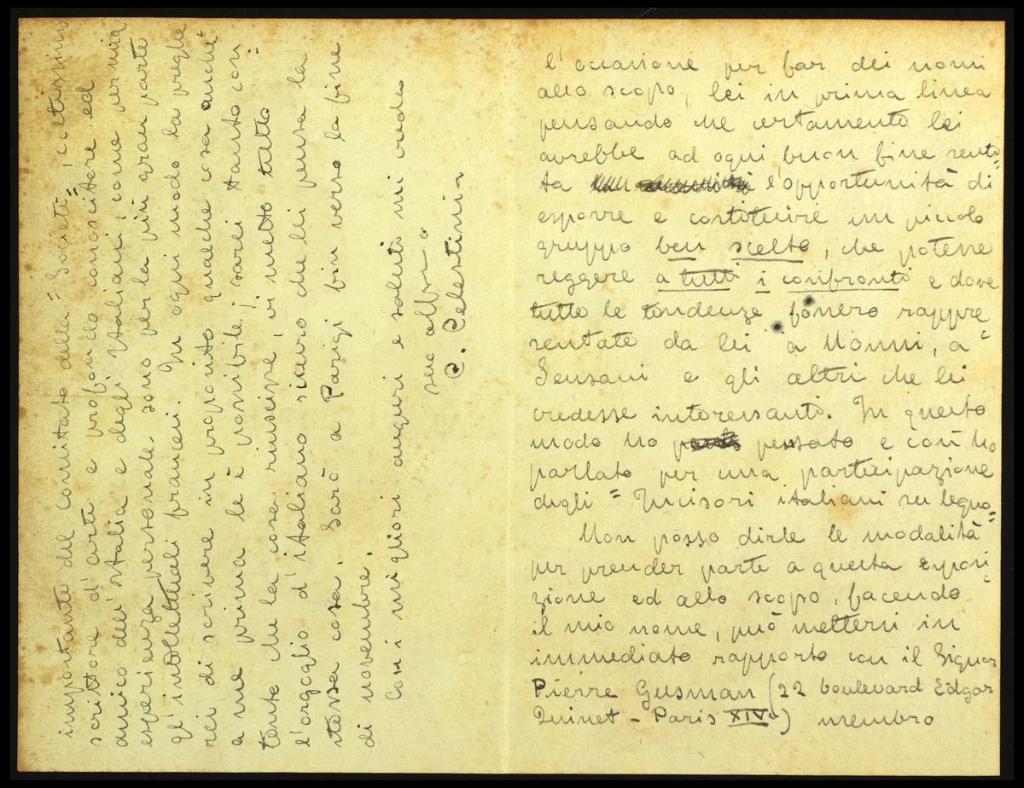 l'occasione per far dei nomi
allo scopo, lei in prima linea
pensando che certamente lei
avrebbe ad ogni buon fine senti=
ta l'opportunità di
esporre e costituire un piccolo
gruppo ben scelto, che potesse
reggere a tutti i confronti e dove
tutte le tendenze fossero rappre
sentate da lei a Nonni, a
Sensani e gli altri che lei
credesse interessanti. In questo
modo ho pensato e così ho
parlato per una partecipazione
degli "Incisori italiani su legno"
Non posso dirle le modalità
per prender parte a questa esposi=
zione ed allo scopo, facendo
il mio nome, può mettersi in
immediato rapporto con il Signor
Pierre Gusman (22 boulevard Edgar
Quinet - Paris XIVe) membro
importante del comitato della "Societé", coltissimo
scrittore d'arte e profondo conoscitore ed
amico dell'Italia e degli Italiani come per mia
esperienza personale sono per la più gran parte
gl'intellettuali francesi. In ogni modo la preghe
rei di scrivere in proposito qualche cosa anche
a me prima le è possibile; sarei tanto con=
tento che la cosa riuscisse, vi metto tutto
l'orgoglio d'italiano sicuro che lei pensa la
stessa cosa. Sarò a Parigi fin verso la fine
di novembre.
Con i migliori auguri e saluti mi creda
suo
C. Celestini